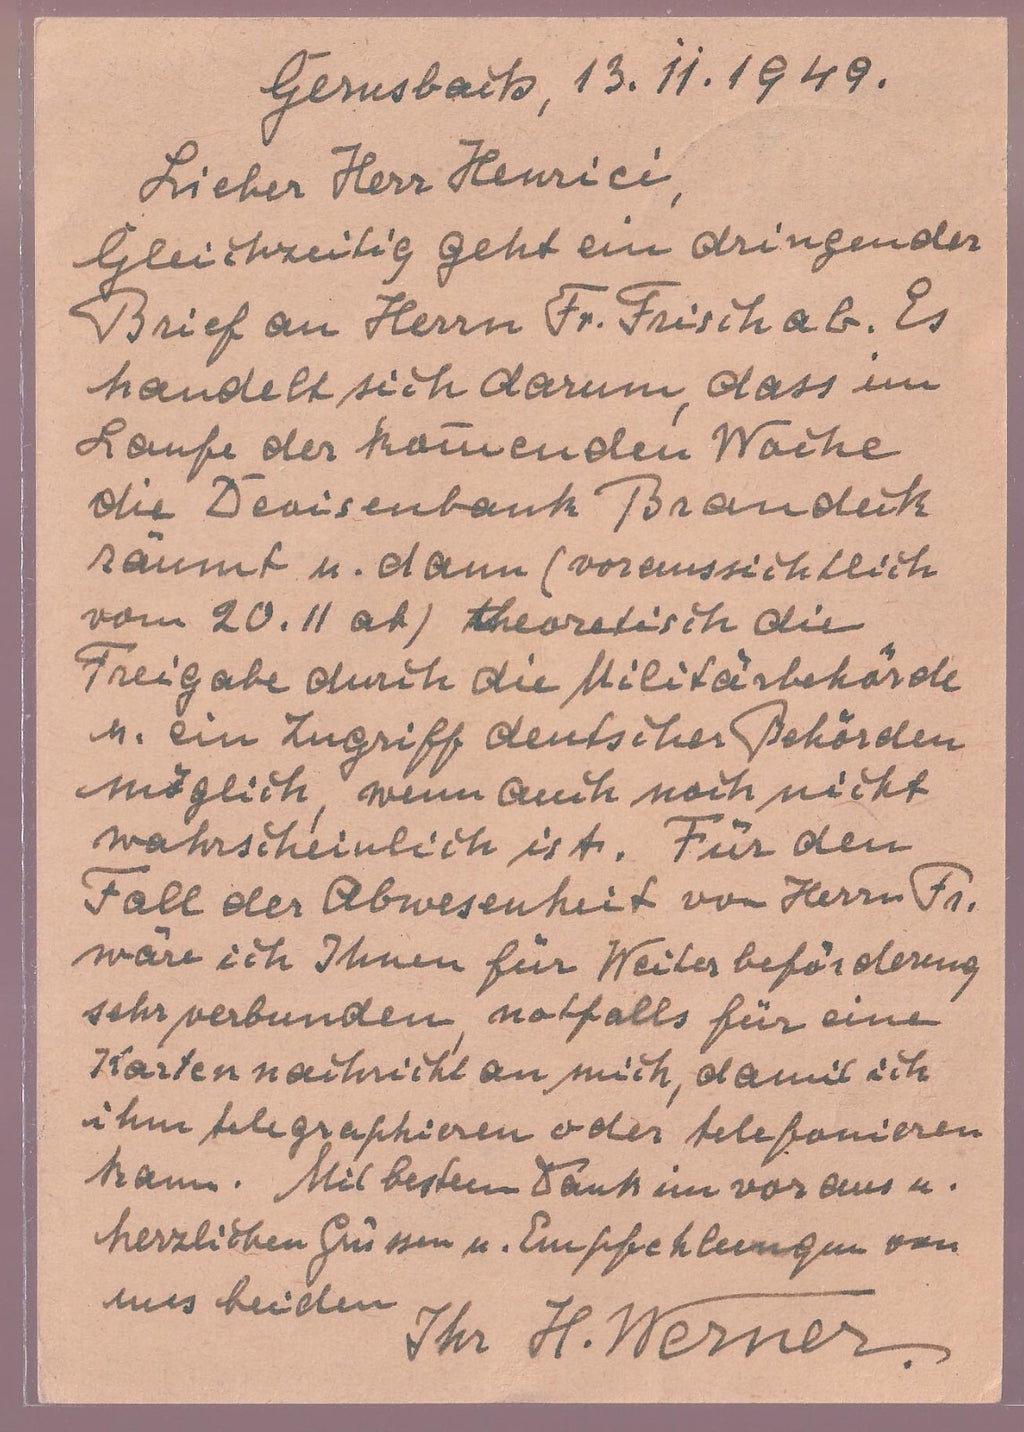 Gernsbach, 13.11.1949.
Lieber Herr Henrici,
Gleichzeitig geht ein dringender
Brief an Herrn Fr. Frisch ab. Es
handelt sich darum, dass im
Laufe der kom̄enden Woche
die Devisenbank Brandeck
räumt u. dann (voraussichtlich
vom 20.11 ab) theoretisch die
Freigabe durch die Militärbehörde
u. ein Zugriff deutscher Behörden
möglich, wenn auch noch nicht
wahrscheinlich ist. Für den
Fall der Abwesenheit von Herrn Fr.
wäre ich Ihnen für Weiterbeförderung
sehr verbunden, notfalls für eine
Kartennachricht an mich, damit ich
ihm telegraphieren oder telefonieren
kann. Mit bestem Dank im voraus u.
herzlichen Grüssen u. Empfehlungen von
uns beiden
Ihr H. Werner.